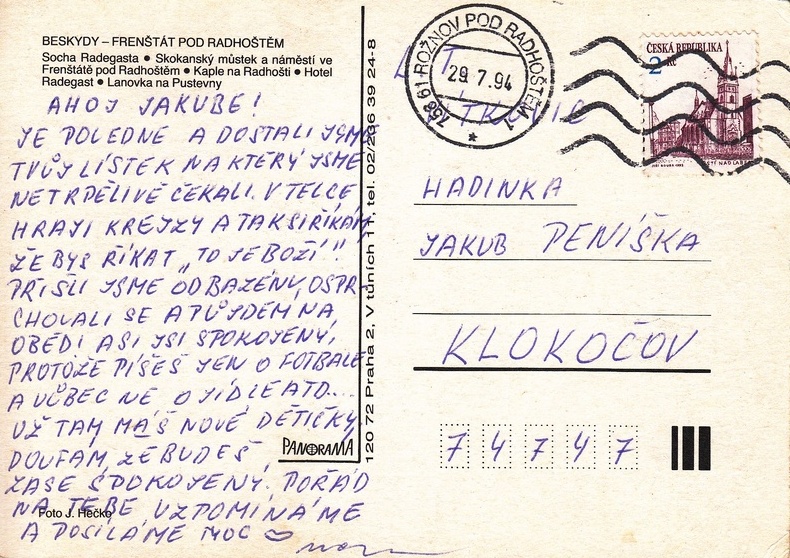 BESKYDY – FRENŠTÁT POD RADHOŠTĚM
Socha Radegasta • Skokanský můstek a náměstí ve
Frenštátě pod Radhoštěm • Kaple na Radhošti • Hotel
Radegast • Lanovka na Pustevny
AHOJ JAKUBE!
JE POLEDNE A DOSTALI JSME
TVŮJ LÍSTEK NA KTERÝ JSME
NETRPĚLIVĚ ČEKALI. V TELCE
HRAJÍ KREJZY A TAK SI ŘÍKÁM,
ŽE BYS ŘÍKAT „TO JE BOŽÍ"!
PŘIŠLI JSME OD BAZÉNU, OSPR-
CHOVALI SE A PŮJDEM NA
OBĚD! ASI JSI SPOKOJENÝ,
PROTOŽE PÍŠEŠ JEN O FOTBALE
A VŮBEC NE O JÍDLE ATD...
UŽ TAM MÁŠ NOVÉ DĚTIČKY,
DOUFÁM, ŽE BUDEŠ
ZASE SPOKOJENÝ. POŘÁD
NA TEBE VZPOMÍNÁME
A POSÍLÁME MOC
Foto J. Hečko
PANORAMA
120 72 Praha 2, V tůních 11, tel. 02/266 39 24-8
756 61 ROŽNOV POD RADHOŠTĚM 1
29.7.94
ČESKÁ REPUBLIKA
2 Kč
ÚSTÍ NAD LABEM
LT
VÍTKOVIC
HADINKA
JAKUB PENIŠKA
KLOKOČOV
7 4 7 4 7